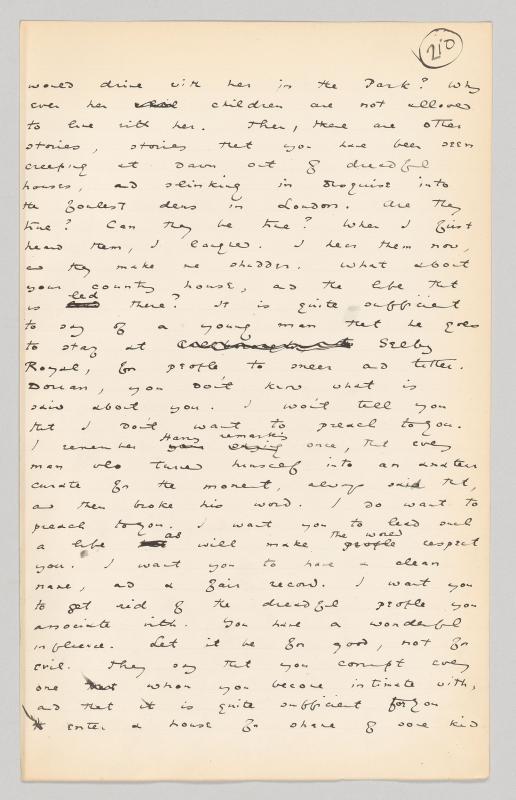 210
would drive with her in the Park? Why
even her children are not allowed
to live with her. Then, there are other
stories, stories that you have been seen
creeping at dawn out of dreadful
houses, and slinking in disguise into
the foulest dens in London. Are they
true? Can they be true? When I first
heard them, I laughed. I hear them now,
and they make me shudder. What about
your country house, and the life that
is led there? It is quite sufficient
to say of a young man that he goes
to stay at Selby
Royal, for people to sneer and titter.
Dorian, you don't know what is
said about you. I won't tell you
that I don't want to preach to you.
I remember Harry remarking once, that every
man who turned himself into an amateur
curate for the moment, always said that,
and then broke his word. I do want to
preach to you. I want you to lead such
a life as will make the world respect
you. I want you to have a clean
name, and a fair record. I want you
to get rid of the dreadful people you
associate with. You have a wonderful
influence. Let it be for good, not for
evil. They say that you corrupt every
one whom you become intimate with,
and that it is quite sufficient for you
to enter a house for shame of some kind